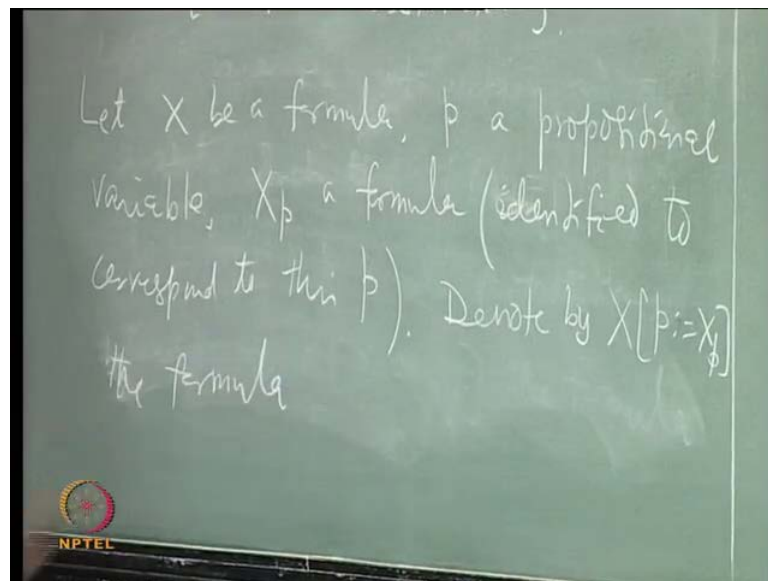 Let X be a formula, p a propositional
variable, Xp a formula (identified to
correspond to this p). Denote by X[p:=Xp]
the formula
NPTEL